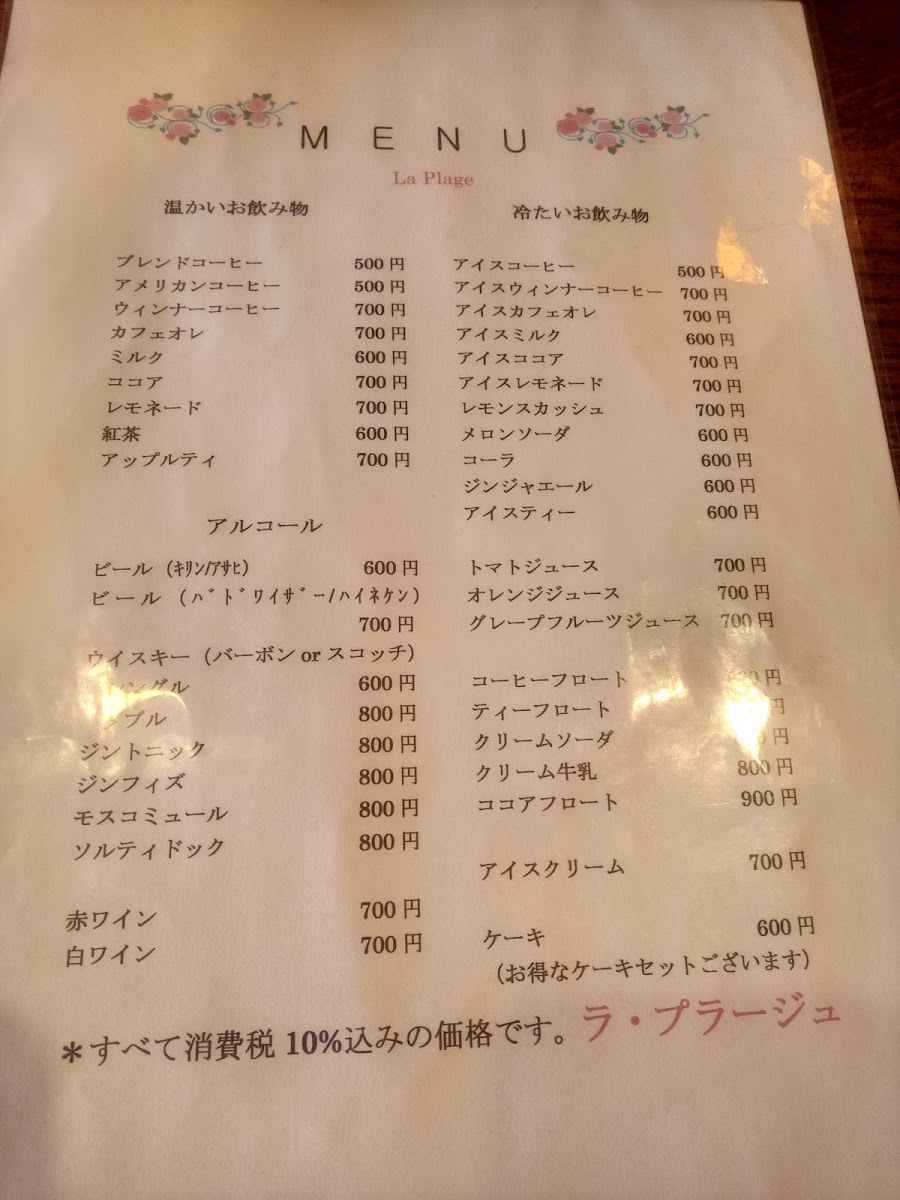 MENU
La Plage
温かいお飲み物
ブレンドコーヒー 500円
アメリカンコーヒー 500円
ウィンナーコーヒー 700円
カフェオレ 700円
ミルク 600円
ココア 700円
レモネード 700円
紅茶 600円
アップルティ 700円
アルコール
ビール（ｷﾘﾝ/ｱｻﾋ） 600円
ビール（ﾊﾞﾄﾞﾜｲｻﾞｰ/ﾊｲﾈｹﾝ）
700円
ウイスキー（バーボン or スコッチ）
シングル 600円
ダブル 800円
ジントニック 800円
ジンフィズ 800円
モスコミュール 800円
ソルティドック 800円
赤ワイン 700円
白ワイン 700円
冷たいお飲み物
アイスコーヒー 500円
アイスウィンナーコーヒー 700円
アイスカフェオレ 700円
アイスミルク 600円
アイスココア 700円
アイスレモネード 700円
レモンスカッシュ 700円
メロンソーダ 600円
コーラ 600円
ジンジャエール 600円
アイスティー 600円
トマトジュース 700円
オレンジジュース 700円
グレープフルーツジュース 700円
コーヒーフロート 円
ティーフロート 円
クリームソーダ 円
クリーム牛乳 800円
ココアフロート 900円
アイスクリーム 700円
ケーキ 600円
（お得なケーキセットございます）
＊すべて消費税10%込みの価格です。ラ・プラージュ